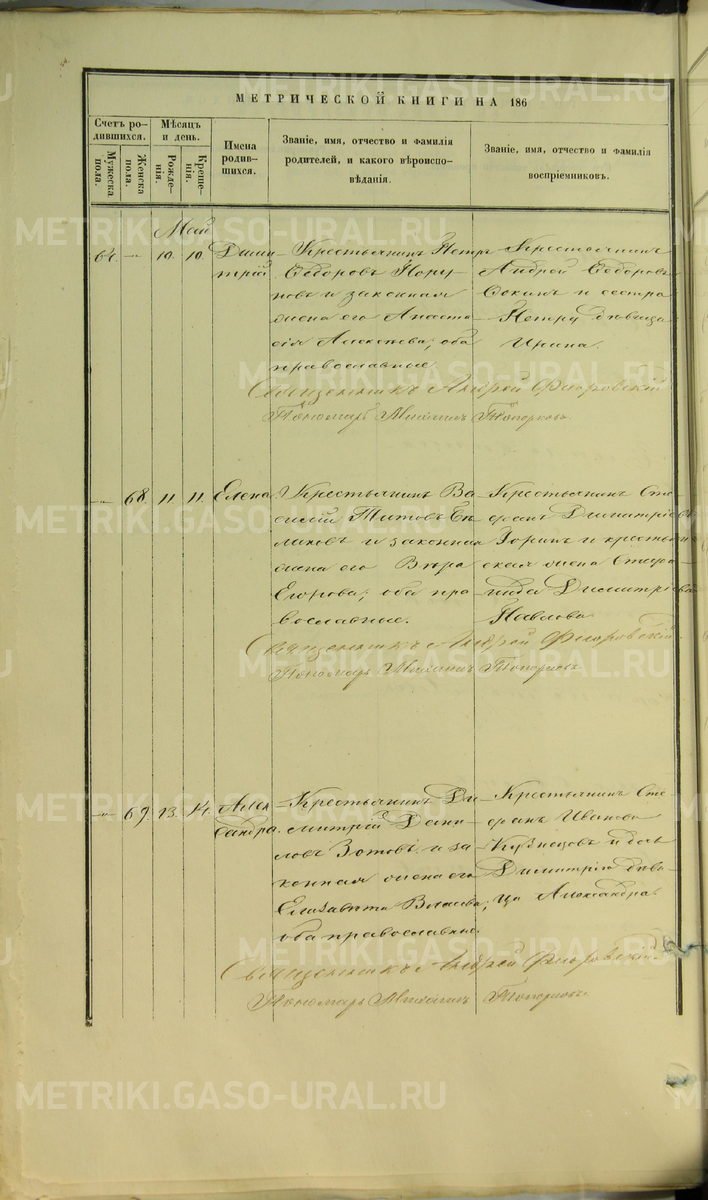 МЕТРИЧЕСКОЙ КНИГИ НА 186
Счетъ ро-
дившихся.
Мѣсяцъ
и день.
Мужеска
пола.
Женска
пола.
Рожде-
нія.
Креще-
нія.
Имена
родив-
шихся.
Званіе, имя, отчество и фамилія
родителей, и какого вѣроиспо-
вѣданія.
Званіе, имя, отчество и фамилія
воспріемниковъ.
Май
64. 10. 10.
Дими-
трій
Крестьянинъ Петръ
Ѳедоровъ
и законная
жена его Анаста-
сія Алексѣева; оба
православные.
Крестьянинъ
Андрей Ѳедоровъ
и сестра
Петру дѣвица
Ирина.
Священникъ Андрей Флоровскій
Пономарь Михаилъ Топорковъ.
68. 11. 11.
Елена
Крестьянинъ Ва-
силій Титовъ
и законная
жена его Вѣра
Егорова; оба пра-
вославные.
Крестьянинъ Сте-
фанъ Димитріевъ
Зоринъ и крестьян-
ская жена Степа-
нида Димитріева
Павлова
Священникъ Андрей Флоровскій.
Пономарь Михаилъ Топорковъ.
69. 13. 14.
Алек-
сандра.
Крестьянинъ Ди-
митрій Дани-
ловъ Зотовъ и за-
конная жена его
Елизавета Власова;
оба православные.
Крестьянинъ Сте-
фанъ Ивановъ
Кузнецовъ и дочь
Димитрія дѣви-
ца Александра
Священникъ Андрей Флоровскій.
Пономарь Михаилъ Топорковъ.
METRIKI.GASO-URAL.RU